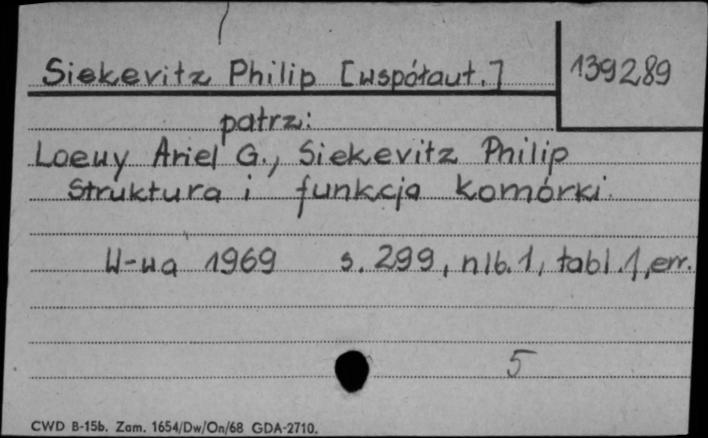 Siekevitz Philip [współaut.]
139289
patrz:
Loewy Ariel G., Siekevitz Philip
Struktura i funkcja komórki.
W-wa 1969 s. 299, nlb. 1, tabl. 1, err.
5
CWD B-15b. Zam. 1654/Dw/On/68 GDA-2710.